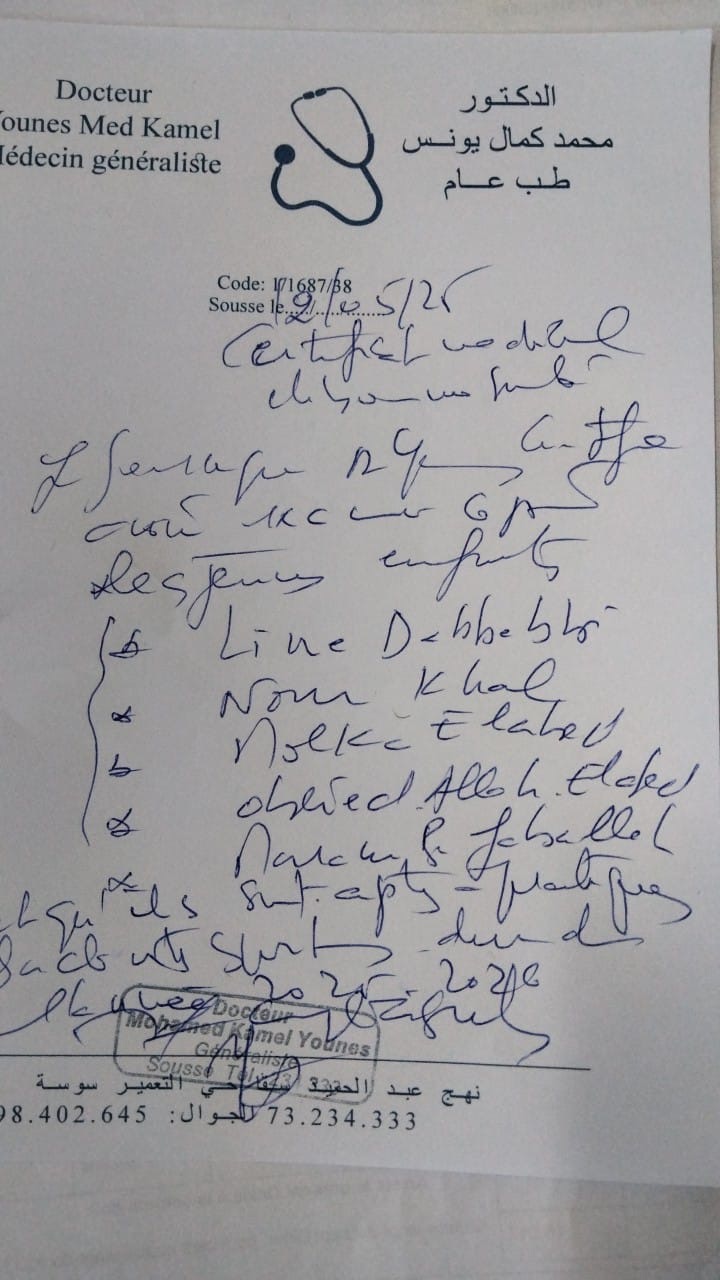 Docteur
Younes Med Kamel
Médecin généraliste
الدكتور
محمد كمال يونس
طب عام
Code: 1/1687/38
Sousse le 12/05/25
Certificat médical
Je soussigné Dr certifie
avoir examiné
les jeunes enfants
Line Dabbabbi
Nour Khal
Molka Elabed
Obeied Allah Elabed
Maram B. Jaballah
et qu'ils sont apts pratiquer
sportives durant
l'année 2025-2026
Docteur
Mohamed Kamel Younes
Généraliste
Sousse Tél
نهج عبد حي التعمير سوسة
73.234.333 الجوال: 98.402.645